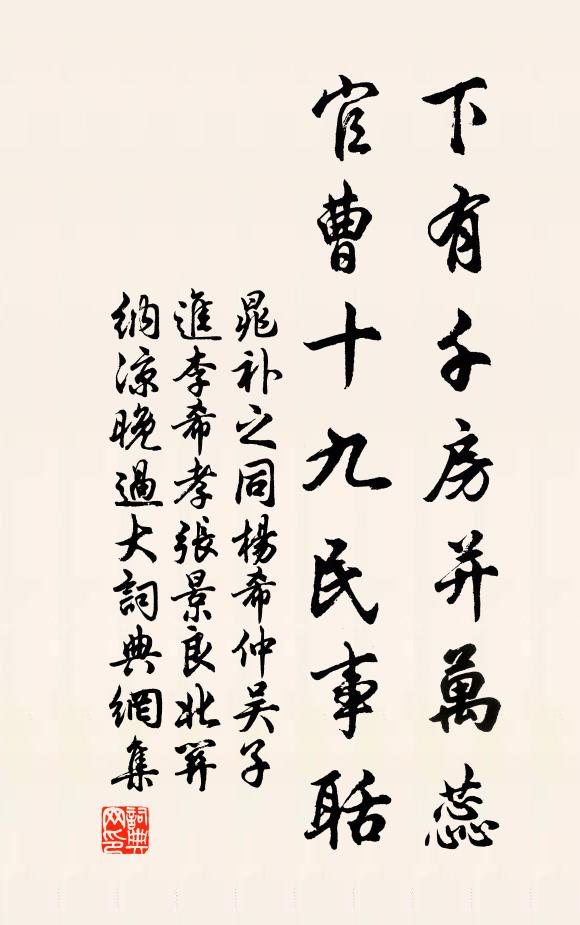 下有千房并萬蕊
官曹十九民事聒
晁补之同楊希仲吴子
進李希孝張景良北榘
納凉晚過大詞典網集
詞典網印